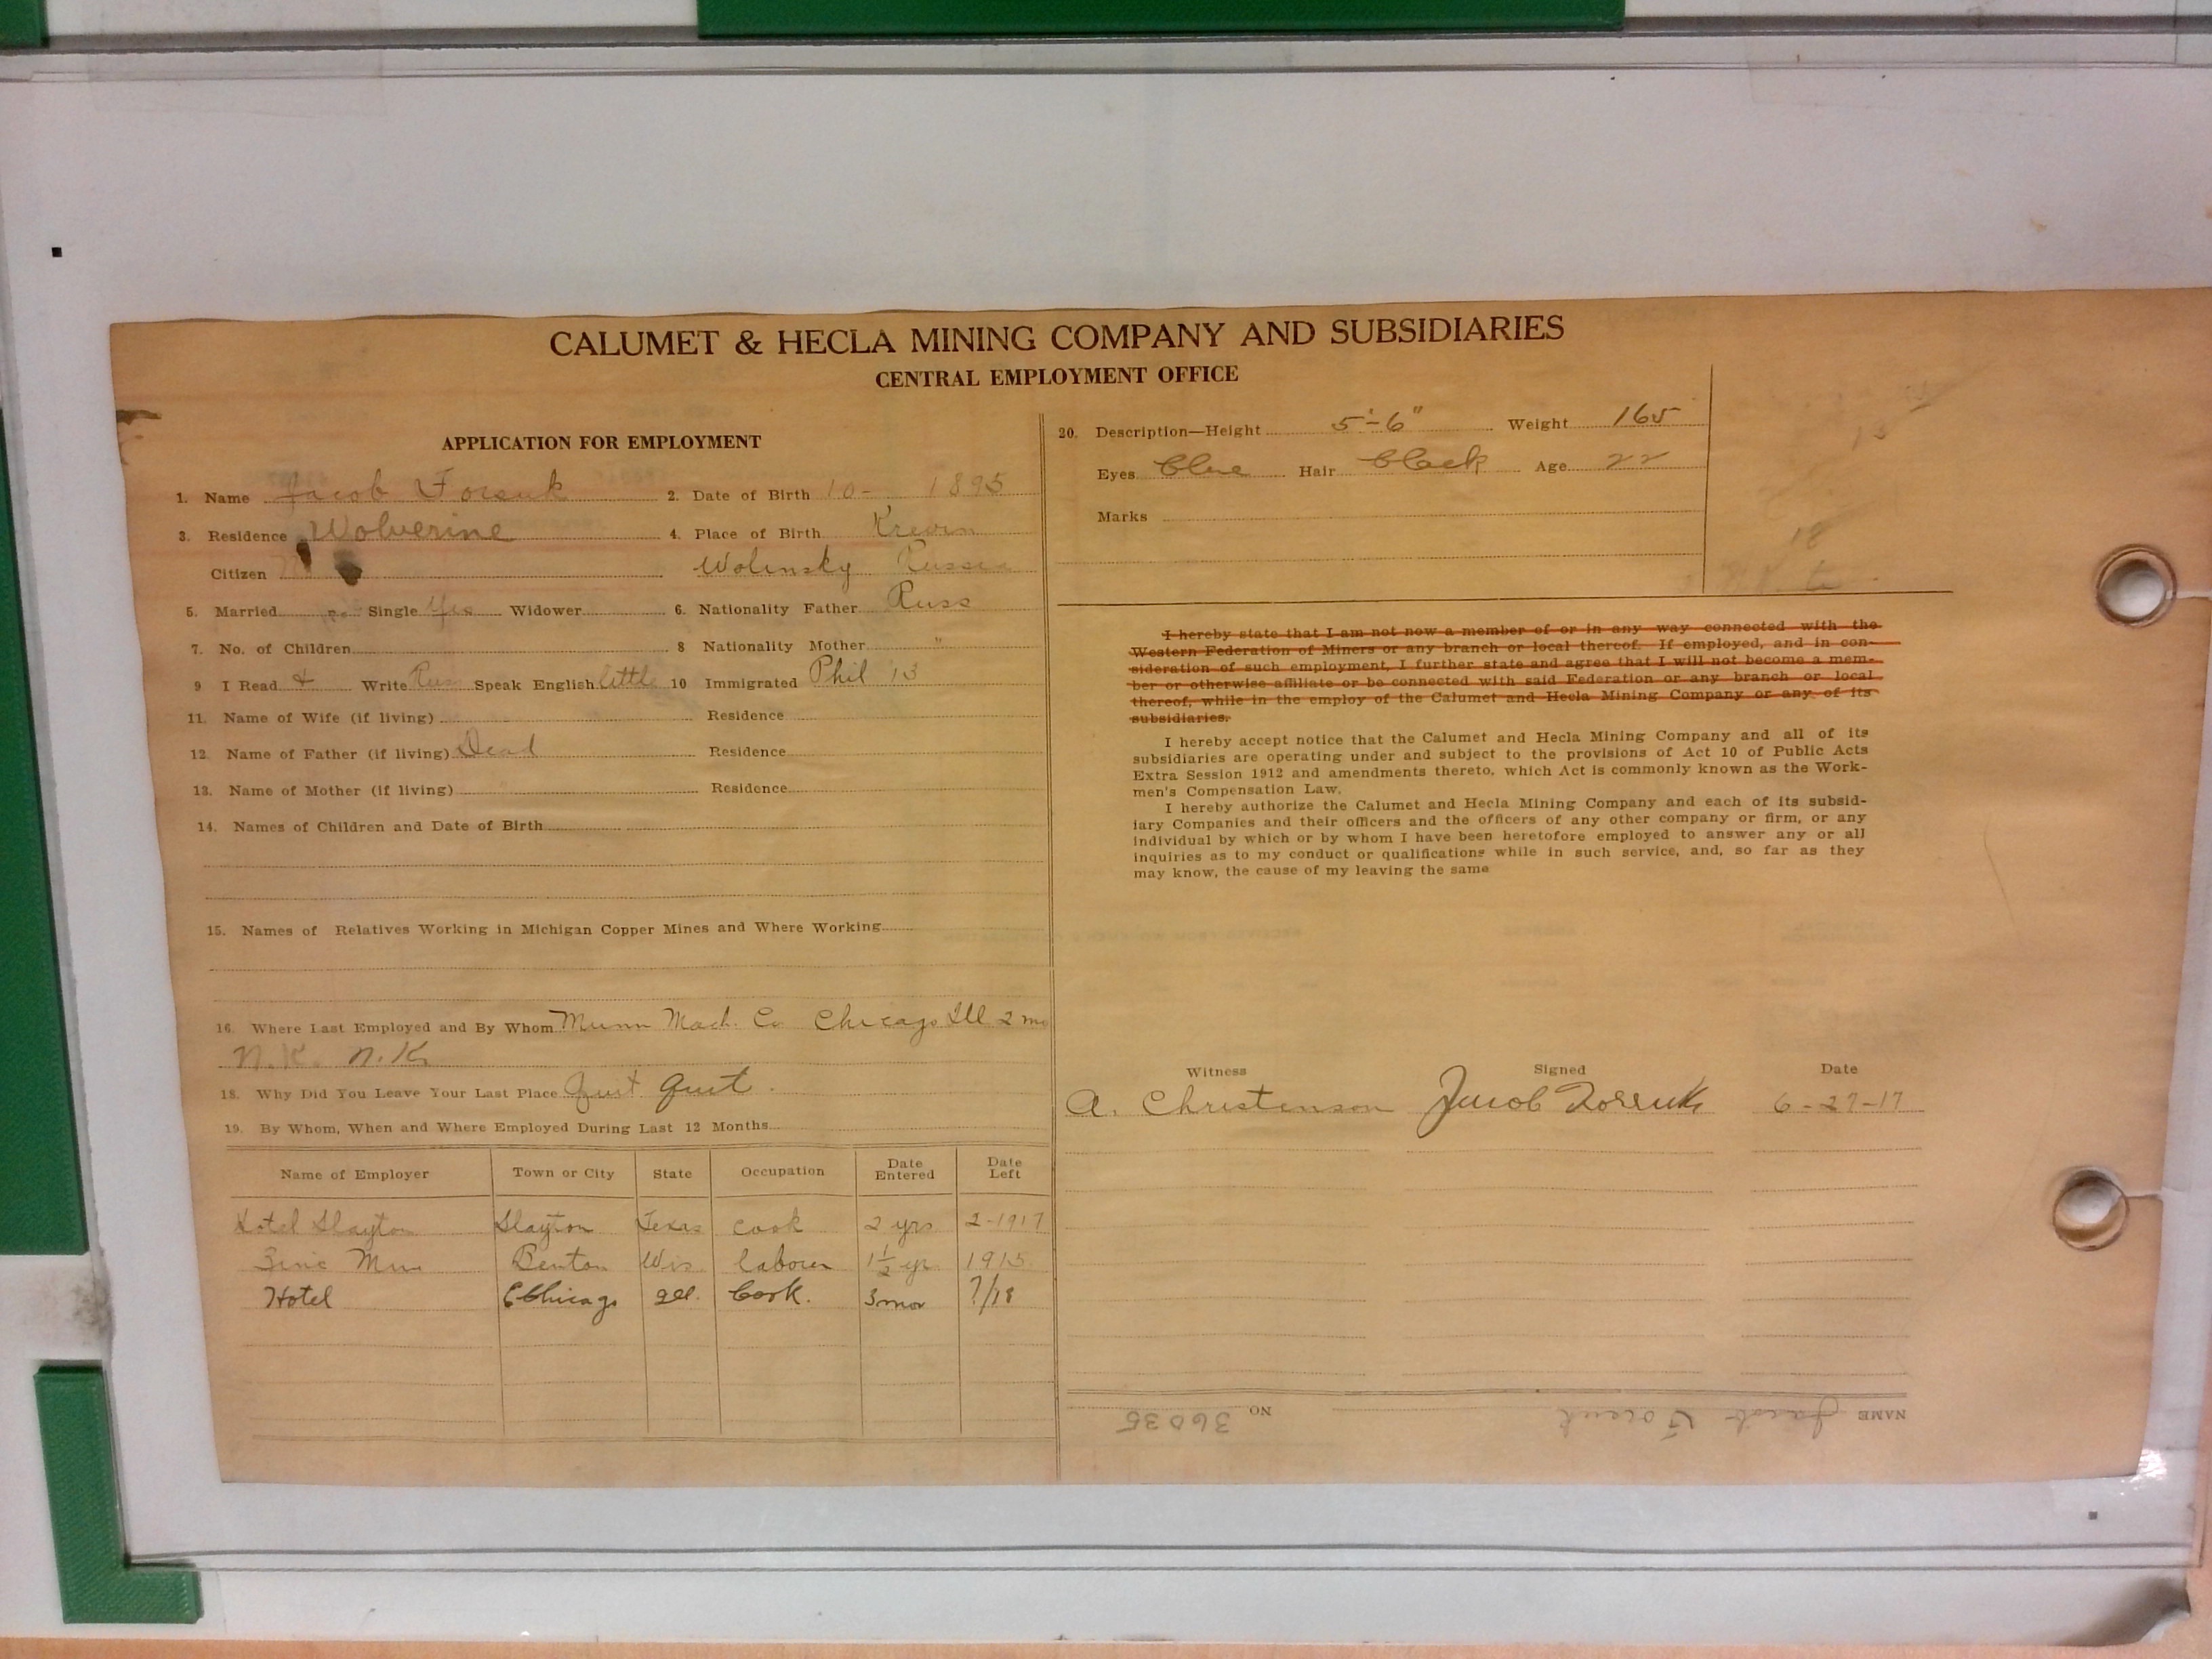 CALUMET & HECLA MINING COMPANY AND SUBSIDIARIES
CENTRAL EMPLOYMENT OFFICE
APPLICATION FOR EMPLOYMENT
1. Name Jacob 2. Date of Birth 10- 1895
3. Residence Wolverine 4. Place of Birth
Citizen Wolinsky Russia
5. Married no Single Yes Widower 6. Nationality Father Russ
7. No. of Children 8 Nationality Mother "
9 I Read & Write Russ Speak English little 10 Immigrated Phil '13
11. Name of Wife (if living) Residence
12. Name of Father (if living) Dead Residence
13. Name of Mother (if living) Residence
14. Names of Children and Date of Birth
15. Names of Relatives Working in Michigan Copper Mines and Where Working
16. Where Last Employed and By Whom Munn Mach. Co Chicago Ill 2 mo
N.K. N.K.
18. Why Did You Leave Your Last Place Quit Quit.
19. By Whom, When and Where Employed During Last 12 Months
Name of Employer Town or City State Occupation Date Entered Date Left
Hotel Slayton Slayton Texas Cook 2 yrs 2-1917
Zinc Benton Wis labourer 1½ yr 1915
Hotel Chicago Ill. Cook. 3 mos ?/18
20. Description—Height 5'-6" Weight 165
Eyes blue Hair black Age 22
Marks
18
I hereby state that I am not now a member of or in any way connected with the
Western Federation of Miners or any branch or local thereof. If employed, and in con-
sideration of such employment, I further state and agree that I will not become a mem-
ber or otherwise affiliate or be connected with said Federation or any branch or local
thereof, while in the employ of the Calumet and Hecla Mining Company or any of its
subsidiaries.
I hereby accept notice that the Calumet and Hecla Mining Company and all of its
subsidiaries are operating under and subject to the provisions of Act 10 of Public Acts
Extra Session 1912 and amendments thereto, which Act is commonly known as the Work-
men's Compensation Law.
I hereby authorize the Calumet and Hecla Mining Company and each of its subsid-
iary Companies and their officers and the officers of any other company or firm, or any
individual by which or by whom I have been heretofore employed to answer any or all
inquiries as to my conduct or qualifications while in such service, and, so far as they
may know, the cause of my leaving the same
Witness Signed Date
A. Christenson Jacob 6-27-17
NAME Jacob NO. 36035